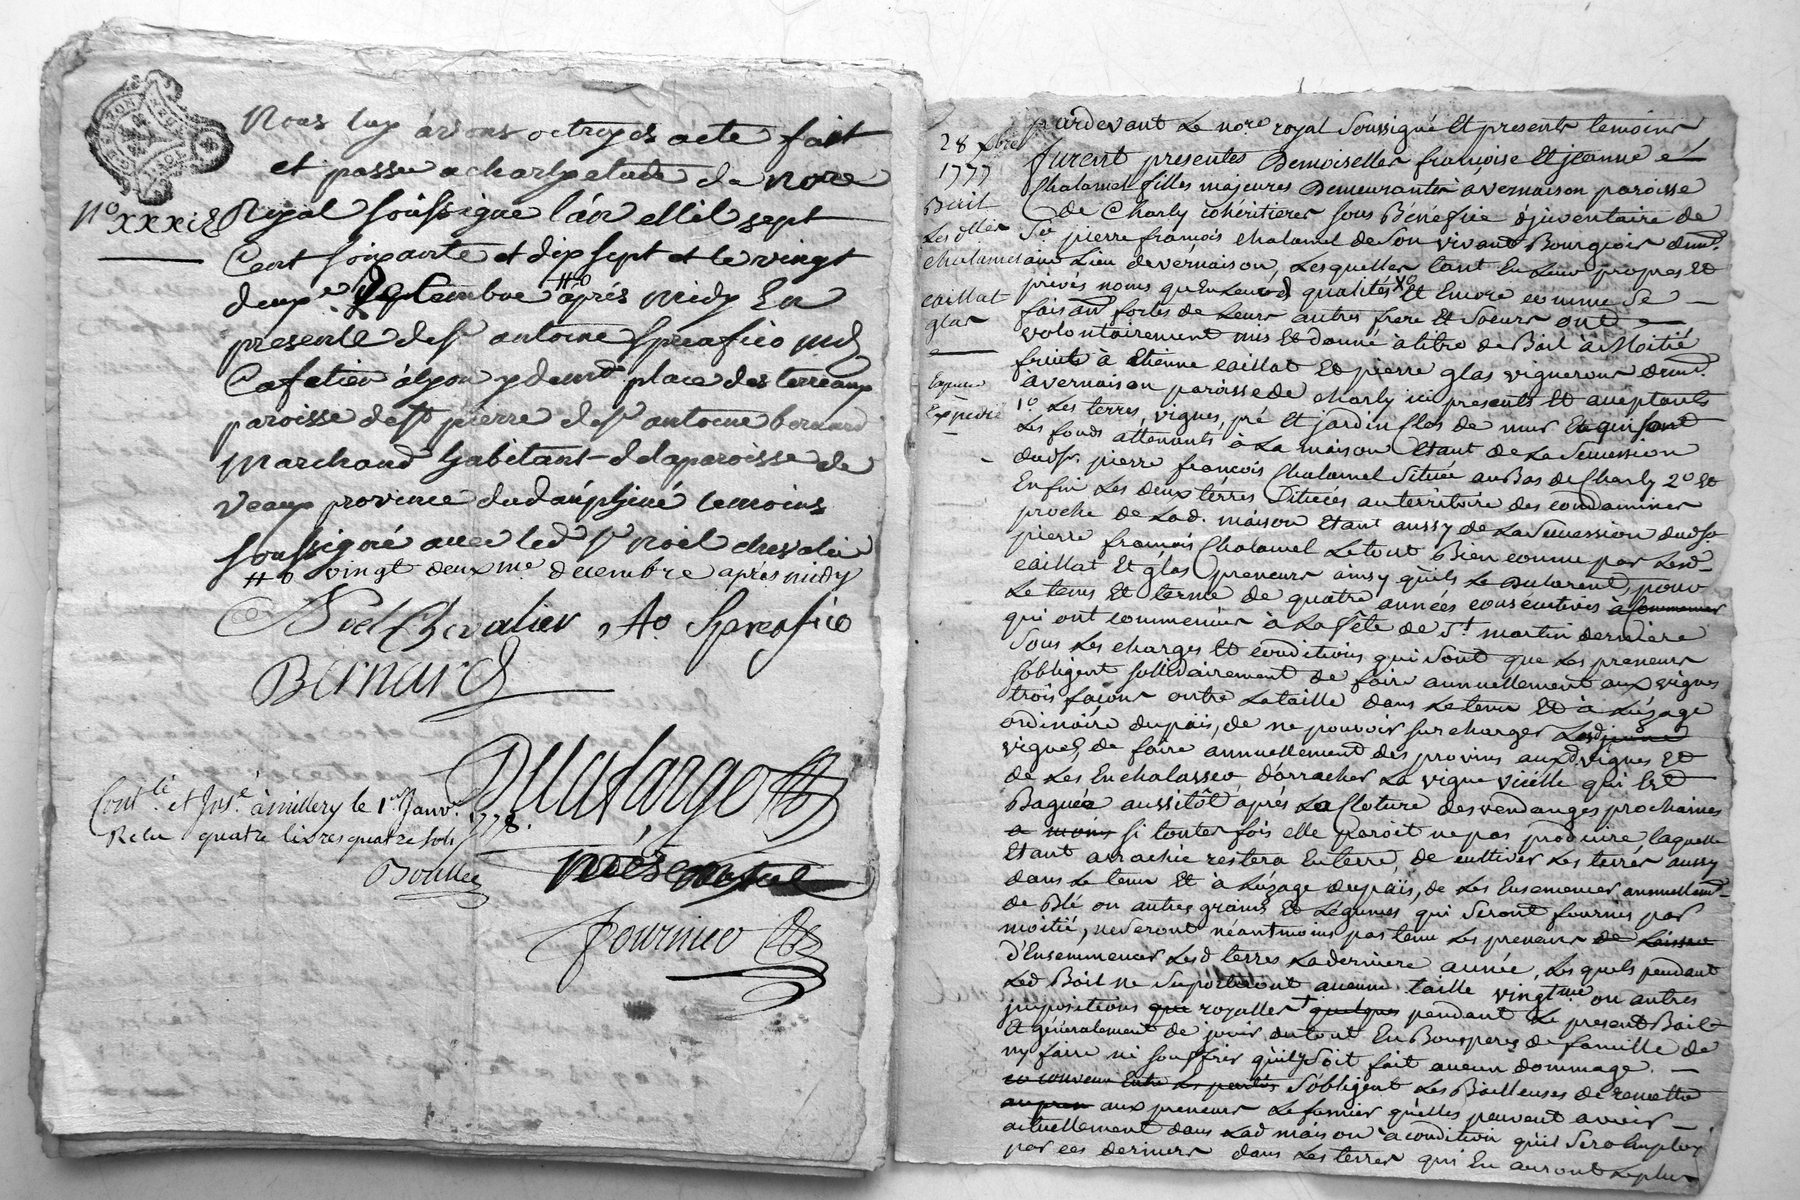 Nous luy avons octroyés acte fait
et passé a charly etude de no.re
N.o XXXIE Royal soussigné l'an Mil sept
Cent soixante et dix sept et le vingt
deux.e Xbre après midy En
presence de s.r antoine Spreafico md
Cafetier à lyon y dem.t place des terreaux
paroisse de St pierre de s.r antoine bernard
Marchand habitant de la paroisse de
veaux province du dauphiné temoins
soussigné avec led s.r noël chevalier
vingt deux.me decembre après midy
Noel Chevalier Ao Spreafico
Bernard
Dulafarge
Cont.lé et Ins.é à millery le 1.er Janv.r 1778.
Recu quatre livres quatre sols
Boullee
fournier
28 Xbre
1777
Bail
Les dlles
chalamel
caillat
glas
Expedié
pardevant Le no.re royal soussigné Et presents temoins
furent presentes Demoiselles françoise Et jeanne
Chalamel filles majeures Demeurantes à vernaison paroisse
de Charly cohéritieres sous Bénéfice d'inventaire de
S.r pierre françois chalamel de son vivant Bourgeois dem.t
au Lieu de vernaison, Lesquelles tant En Leur propres Et
privés noms qu'En leursd qualités Et Encore comme se
faisant fortes de Leurs autres frere Et soeurs ont
volontairement mis Et donné à titre de Bail à Moitié
fruits à Etienne caillat Et pierre glas vignerons dem.t
à vernaison paroisse de charly ici presents Et acceptants
1.o Les terres, vignes, pré Et jardin clos de murs En qui sont
Les fonds attenants à La maison Etant de La succession
dud sr. pierre françois Chalamel située au Bas de Charly 2.o Et
Enfin Les deux terres situées au territoire des condamines
proche de Lad. maison Etant aussy de La succession dud sr
pierre françois Chalamel Le tout Bien connu par Lesd.
caillat Et glas preneurs ainsy qu'ils Le declarent, pour
Le tems Et terme de quatre années consécutives à commencer
qui ont commencées à La fête de St martin derniere
sous Les charges Et conditions qui sont que Les preneurs
s'obligent solidairement de faire annuellement aux vignes
trois façons outre La taille dans Le tems Et à L'uzage
ordinaire du païs, de ne pouvoir surcharger
vignes, de faire annuellement des provins auxd vignes Et
de Les Enchalasser d'arracher La vigne vieille qui Est
Baguée aussitôt après La cloture des vendanges prochaines
a moins si toutes fois elle paroit ne pas produire, laquelle
Etant arrachée restera En terre, de cultiver Les terres aussy
dans Le tems Et à L'uzage du païs, de Les Ensemencer annuellem.t
de Blé ou autres grains Et Légumes qui seront fournis par
moitié, ne seront néantmoins pas tenu Les preneurs de Laisser
d'Ensemmencer Lesd terres La derniere année, Lesquels pendant
Led Bail ne suporteront aucune taille vingtme ou autres
impositions que royalles quelques pendant Le present Bail
Et généralement de jouir du tout En Bons peres de famille de
ny faire ni souffrir qu'il y soit fait aucun dommage.
Entre Les parties s'obligent Les Bailleuses de remettre
aux preneurs Le fumier qu'elles peuvent avoir
actuellement dans Lad maison à condition qu'il sera Employé
par ces derniers dans Les terres qui En auront Le plus